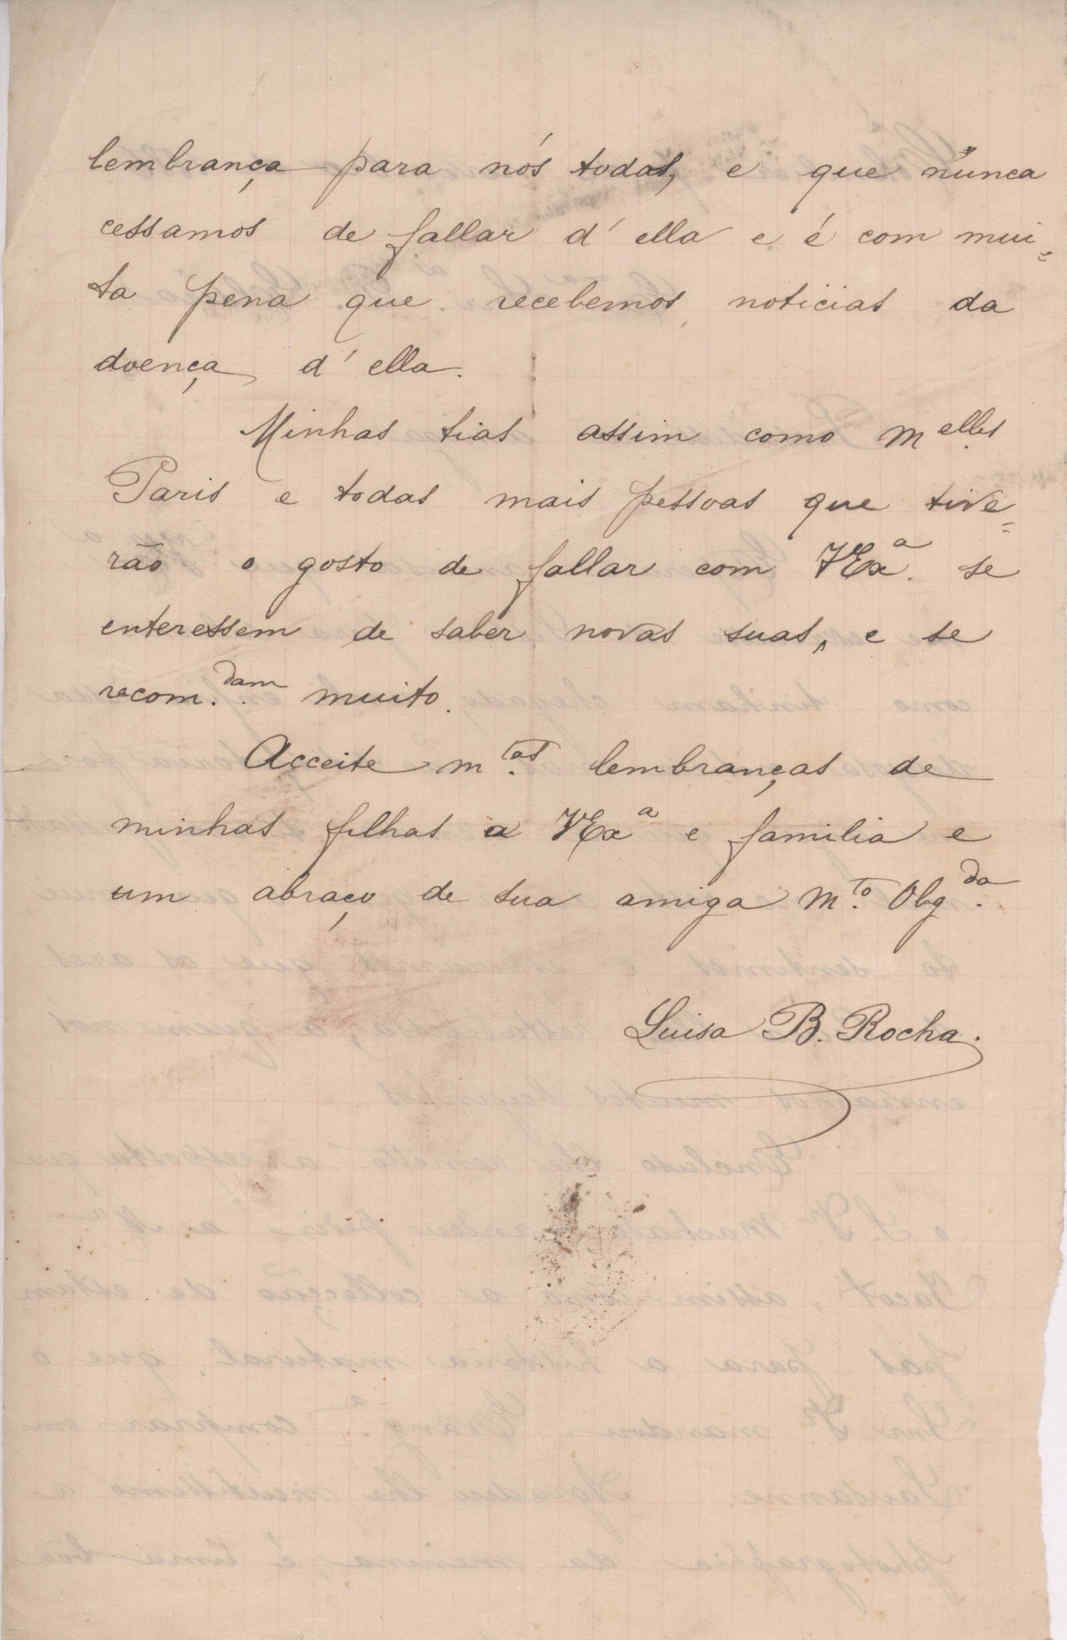 lembrança para nós todas, e que nunca
cessamos de fallar d'ella e é com mui=
ta pena que recebemos noticias da
doença d'ella.
Minhas tias assim como Melles
Paris e todas mais pessoas que tive=
rão o gosto de fallar com VExa. se
enteressem de saber novas suas, e se
recom.dam muito.
Acceite mtas. lembranças de
minhas filhas a VExa e familia e
um abraço de sua amiga Mto. Obgda.
Luisa B. Rocha.